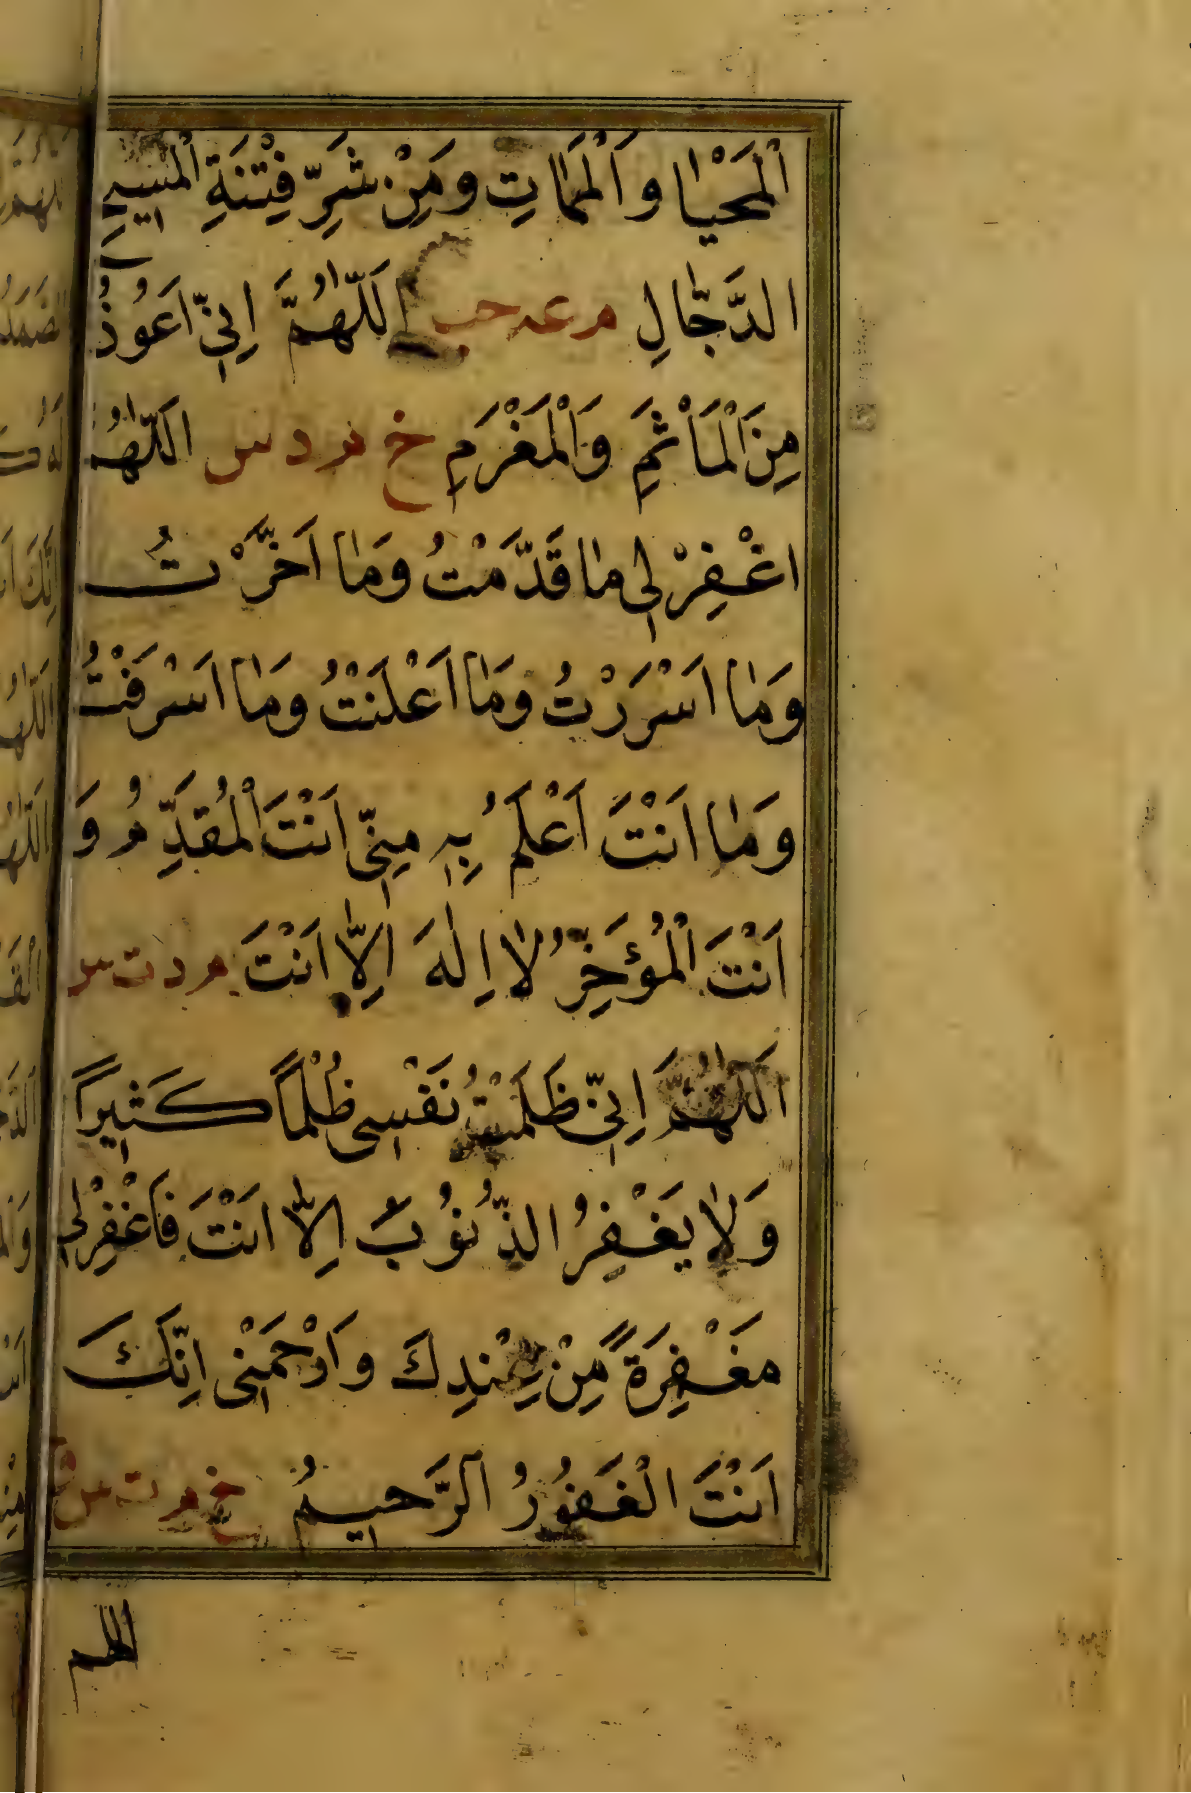 اَلْمَحْيَا وَالْمَمَاتِ وَمِنْ شَرِّ فِتْنَةِ الْمَسِيحِ
الدَّجَّالِ م عه حب اَللّٰهُمَّ اِنِّي اَعُوذُ
مِنَ الْمَأْثَمِ وَالْمَغْرَمِ خ م د س اَللّٰهُمَّ
اغْفِرْ لِي مَا قَدَّمْتُ وَمَا اَخَّرْتُ
وَمَا اَسْرَرْتُ وَمَا اَعْلَنْتُ وَمَا اَسْرَفْتُ
وَمَا اَنْتَ اَعْلَمُ بِهِ مِنِّي اَنْتَ الْمُقَدِّمُ وَ
اَنْتَ الْمُؤَخِّرُ لَا اِلٰهَ اِلَّا اَنْتَ م د ت س
اَللّٰهُمَّ اِنِّي ظَلَمْتُ نَفْسِي ظُلْمًا كَثِيرًا
وَلَا يَغْفِرُ الذُّنُوبَ اِلَّا اَنْتَ فَاغْفِرْ لِي
مَغْفِرَةً مِنْ عِنْدِكَ وَارْحَمْنِي اِنَّكَ
اَنْتَ الْغَفُورُ الرَّحِيمُ خ م ت س
اللهم